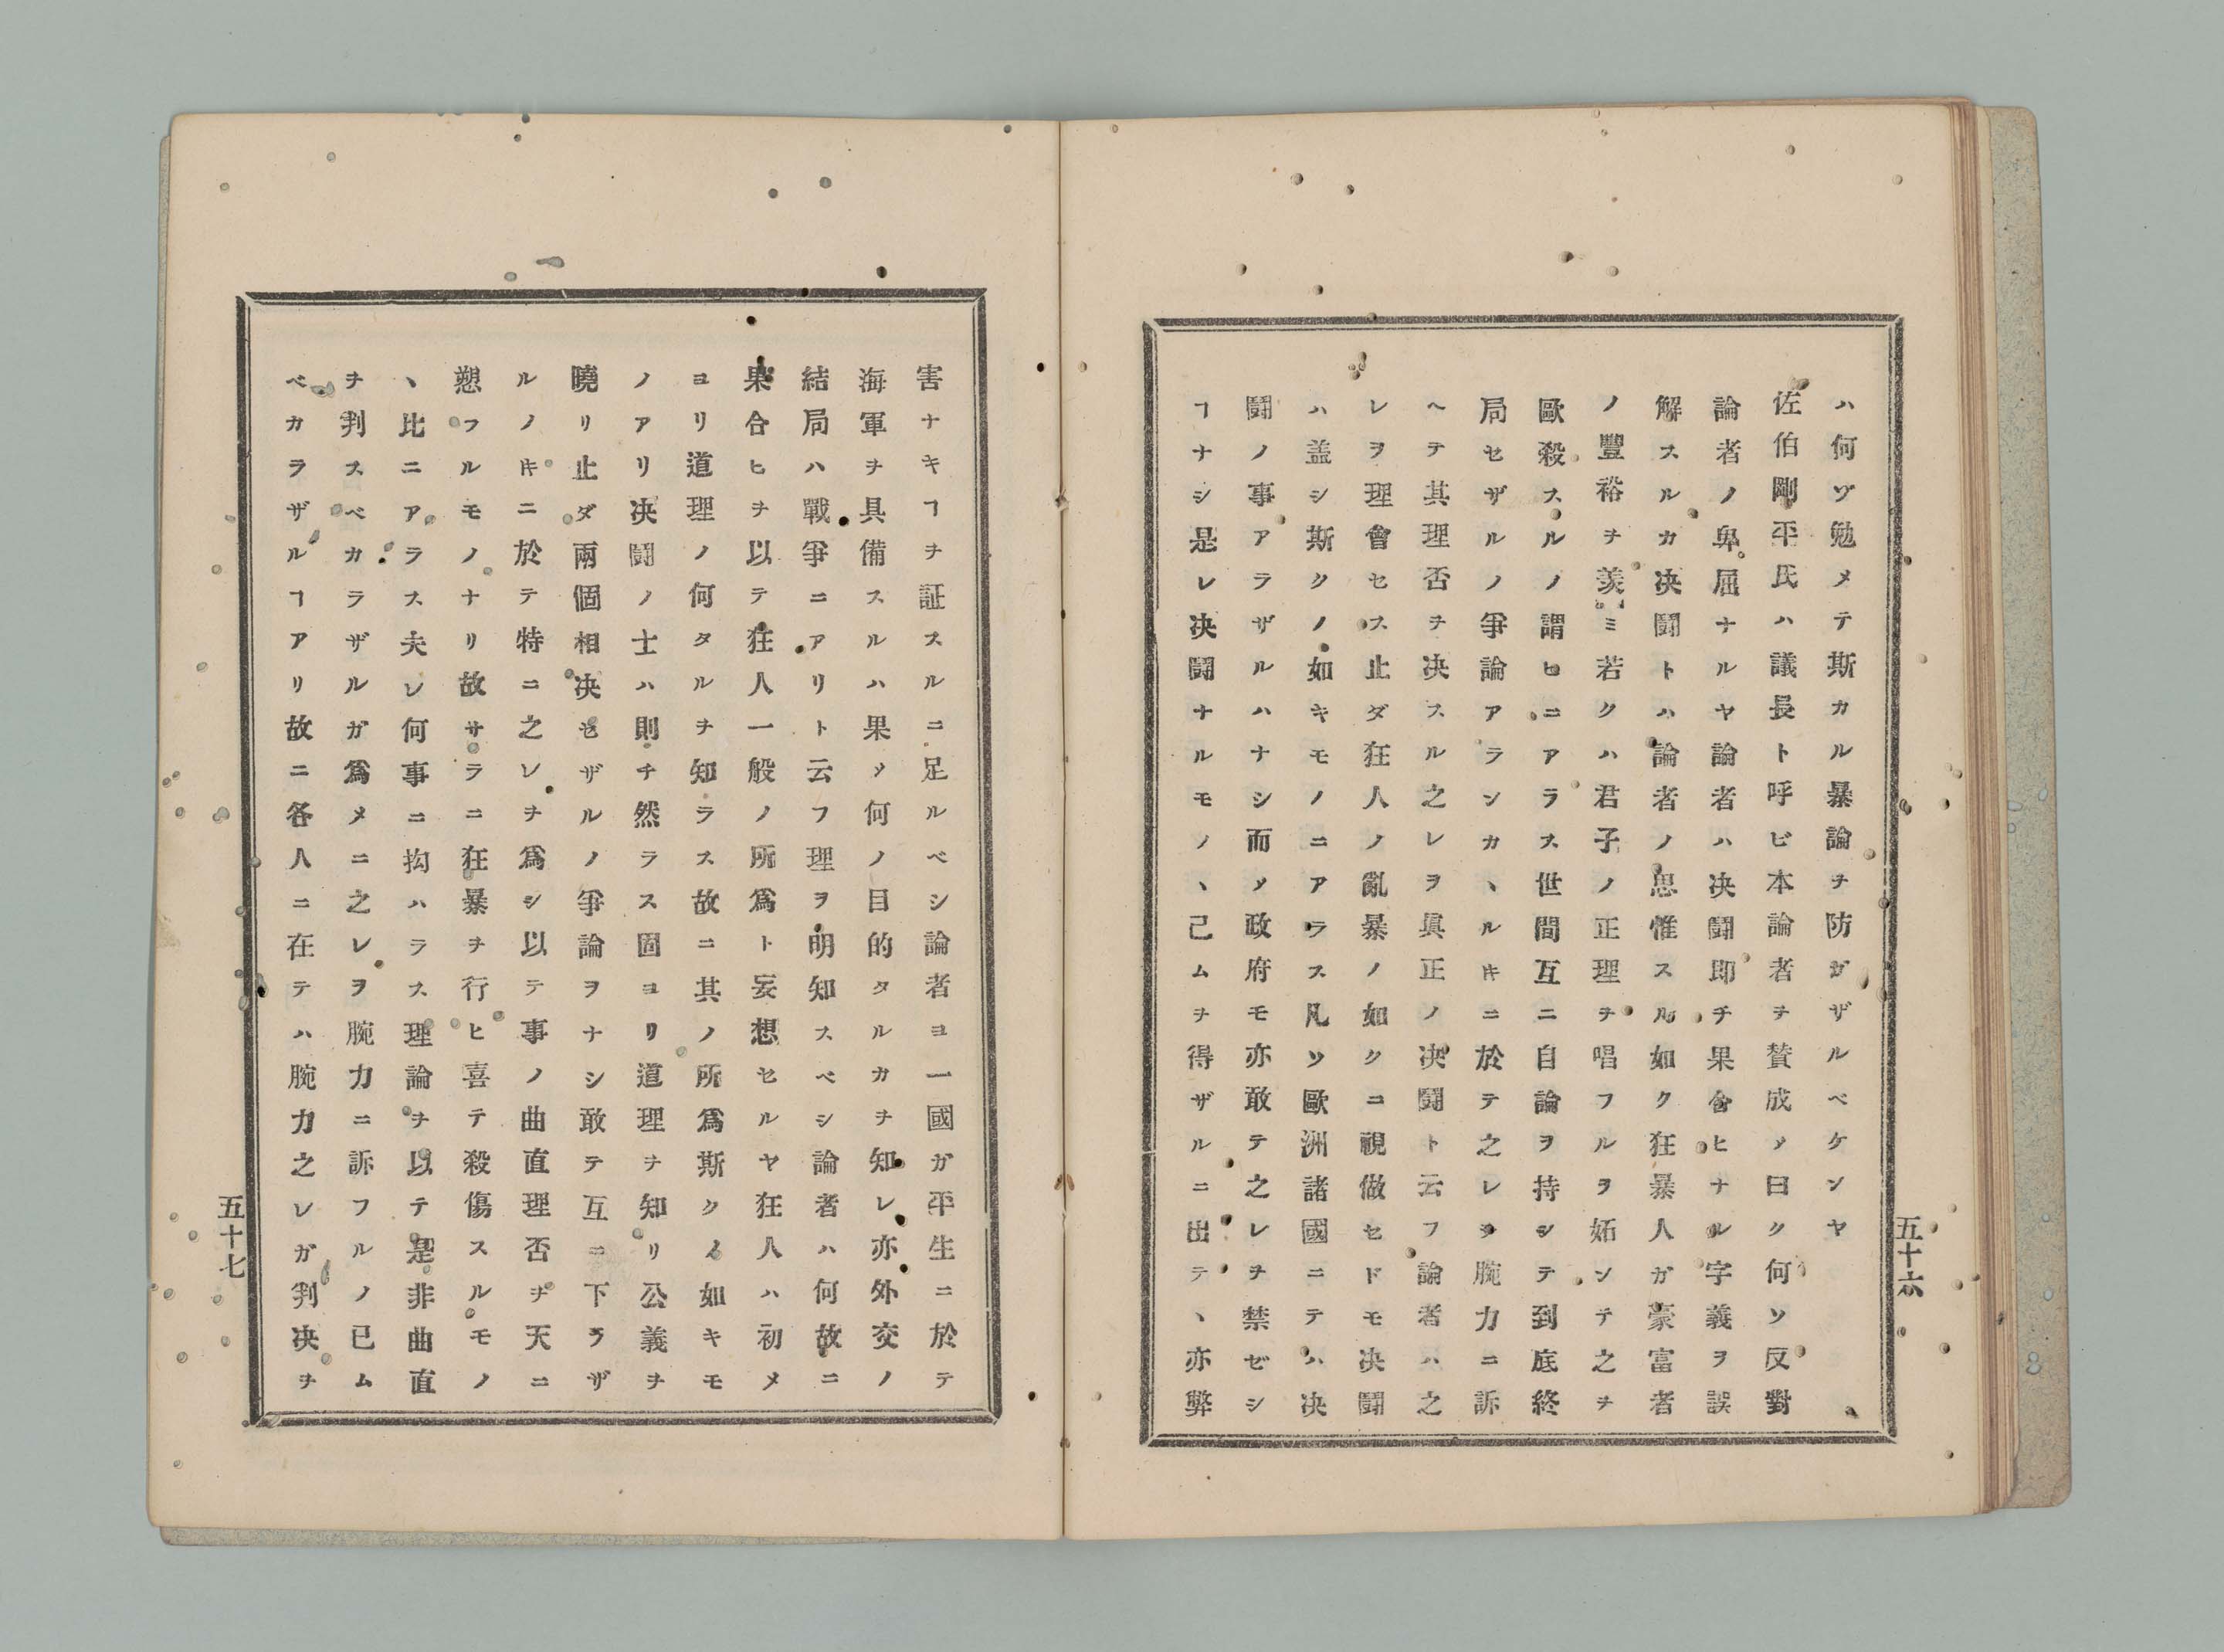 ハ何ゾ勉メテ斯カル暴論ヲ防ガザルベケンヤ
佐伯剛平氏ハ議長ト呼ビ本論者ヲ賛成メ曰ク何ソ反對
論者ノ卑屈ナルヤ論者ハ决闘即チ果合ヒナル字義ヲ誤
解スルカ决闘トハ論者ノ思惟スル如ク狂暴人ガ豪富者
ノ豐裕ヲ羨ミ若クハ君子ノ正理ヲ唱フルヲ妬ンテ之ヲ
歐殺スルノ謂ヒニアラス世間互ニ自論ヲ持シテ到底終
局セザルノ爭論アランカヽルキニ於テ之レヲ腕力ニ訴
ヘテ其理否ヲ决スル之レヲ眞正ノ决闘ト云フ論者ハ之
レヲ理會セス止ダ狂人ノ亂暴ノ如クニ視做セドモ决闘
ハ盖シ斯クノ如キモノニアラス凡ソ歐洲諸國ニテハ决
闘ノ事アラザルハナシ而メ政府モ亦敢テ之レヲ禁ゼシ
ヿナシ是レ决闘ナルモノヽ己ムヲ得ザルニ出テヽ亦弊
五十六
害ナキヿヲ証スルニ足ルベシ論者ヨ一國ガ平生ニ於テ
海軍ヲ具備スルハ果メ何ノ目的タルカヲ知レ亦外交ノ
結局ハ戰爭ニアリト云フ理ヲ明知スベシ論者ハ何故ニ
果合ヒヲ以テ狂人一般ノ所爲ト妄想セルヤ狂人ハ初メ
ヨリ道理ノ何タルヲ知ラス故ニ其ノ所爲斯クノ如キモ
ノアリ决闘ノ士ハ則チ然ラス固ヨリ道理ヲ知リ公義ヲ
曉リ止ダ兩個相决セザルノ爭論ヲナシ敢テ互ニ下ラザ
ルノキニ於テ特ニ之レヲ爲シ以テ事ノ曲直理否ヲ天ニ
愬フルモノナリ故サラニ狂暴ヲ行ヒ喜テ殺傷スルモノ
ヽ比ニアラス夫レ何事ニ抅ハラス理論ヲ以テ是非曲直
ヲ判スベカラザルガ爲メニ之レヲ腕力ニ訴フルノ已ム
ベカラザルヿアリ故ニ各人ニ在テハ腕力之レガ判决ヲ
五十七